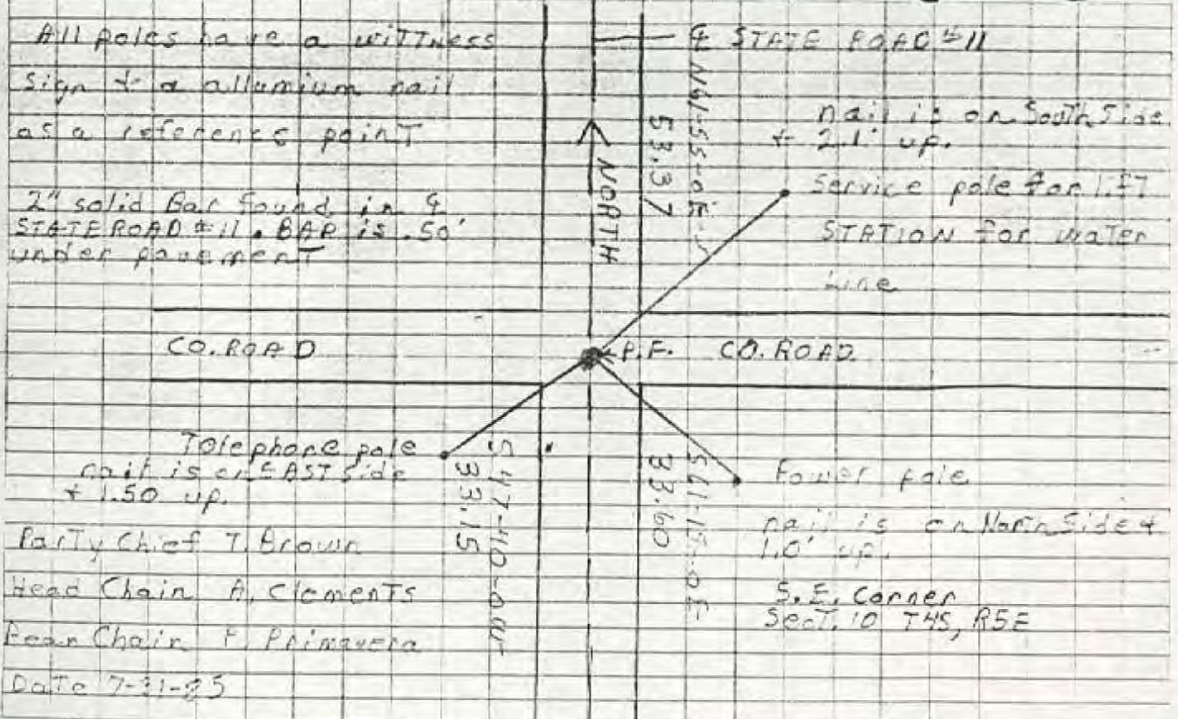 All poles have a wiTTness
Sign + a allumium nail
as a reference poinT
2" solid Bar found in ℄
STATE ROAD #11. BAR is .50'
under pavemenT
℄ STATE ROAD #11
N61-55-0E
53.37
NORTH
nail is on SouTh Side
+ 2.1' up.
Service pole for lifT
STATION for waTer
Line
CO. ROAD
P.F.
CO. ROAD
Telephone pole
nail is on EAST Side
+ 1.50 up.
S47-40-0W
33.15
S61-15-0E
33.60
Power pole
nail is on NorTh Side +
1.0' up.
S.E. Corner
SecT. 10 T4S, R5E
ParTy Chief T. Brown
Head Chain A. ClemenTs
Rear Chain P. Primavera
DaTe 7-31-85